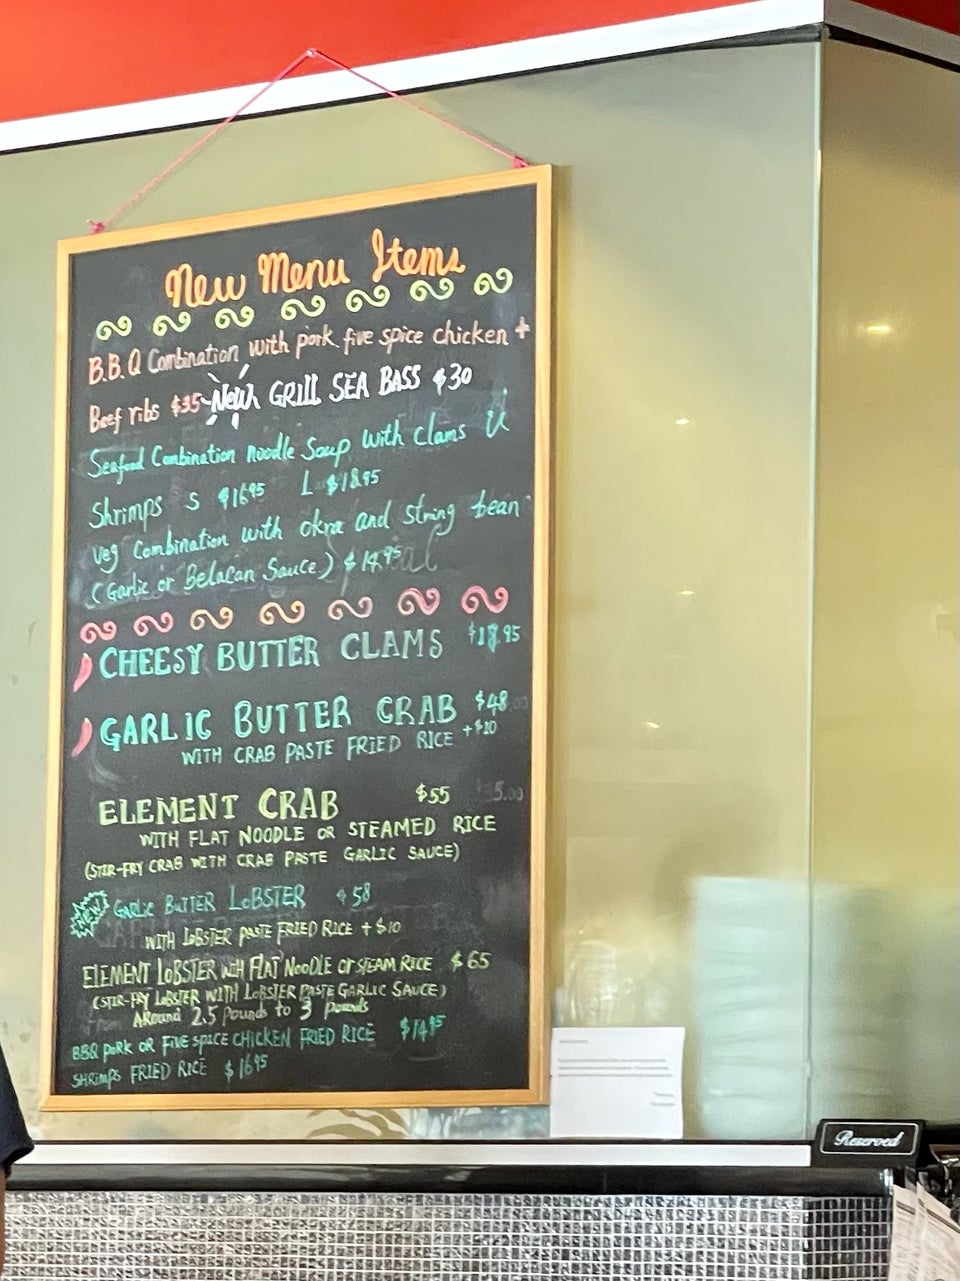 New Menu Items
B.B.Q Combination with pork five spice chicken +
Beef ribs $35 New GRILL SEA BASS $30
Seafood Combination noodle Soup with Clams U
Shrimps S $16.95 L $18.95
Veg Combination with okra and string bean
(Garlic or Belacan Sauce) $14.95
CHEESY BUTTER CLAMS $18.95
GARLIC BUTTER CRAB $48
WITH CRAB PASTE FRIED RICE +$10
ELEMENT CRAB $55
WITH FLAT NOODLE OR STEAMED RICE
(STIR-FRY CRAB WITH CRAB PASTE GARLIC SAUCE)
NEW GARLIC BUTTER LOBSTER $58
WITH LOBSTER PASTE FRIED RICE + $10
ELEMENT LOBSTER WITH FLAT NOODLE OR STEAM RICE $65
(STIR-FRY LOBSTER WITH LOBSTER PASTE GARLIC SAUCE)
AROUND 2.5 Pounds to 3 pounds
BBQ PORK OR FIVE SPICE CHICKEN FRIED RICE $14.95
SHRIMPS FRIED RICE $16.95
Reserved